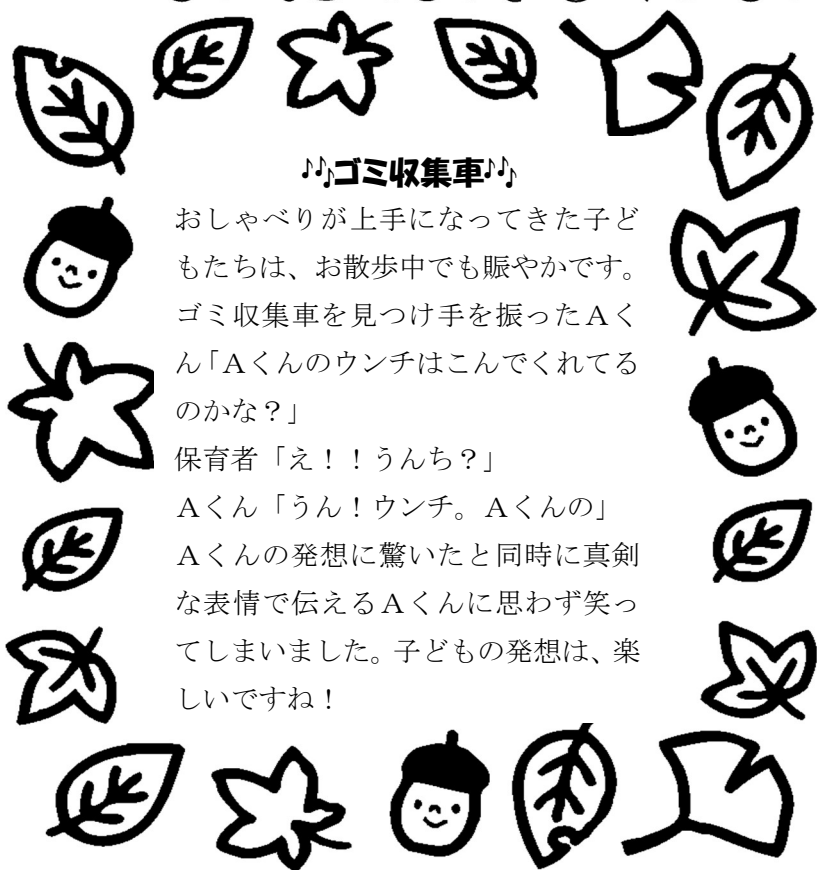 ♪♪ゴミ収集車♪♪
おしゃべりが上手になってきた子ど
もたちは、お散歩中でも賑やかです。
ゴミ収集車を見つけ手を振ったＡく
ん「Ａくんのウンチはこんでくれてる
のかな？」
保育者「え！！うんち？」
Ａくん「うん！ウンチ。Ａくんの」
Ａくんの発想に驚いたと同時に真剣
な表情で伝えるＡくんに思わず笑っ
てしまいました。子どもの発想は、楽
しいですね！